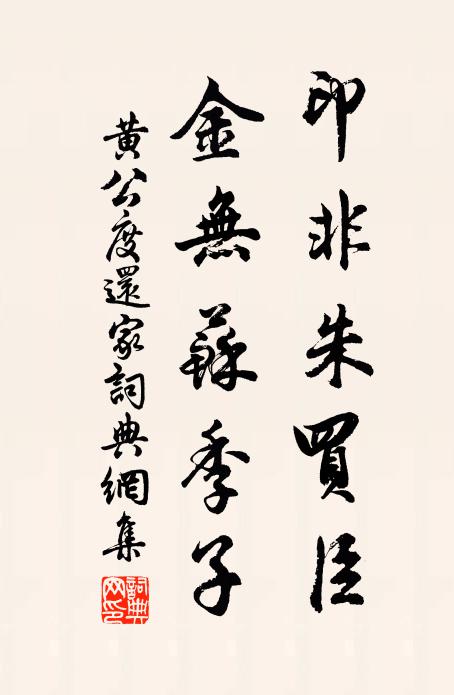 印非朱買臣
金無蘇季子
黃公度還家詞典網集
詞典网印